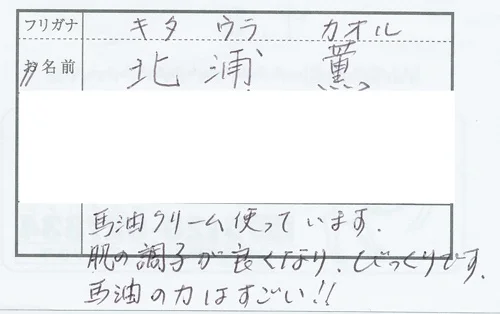 フリガナ キタ ウラ カオル
お名前 北浦 薫
馬油クリーム使っています.
肌の調子が良くなり、びっくりです。
馬油の力はすごい!!